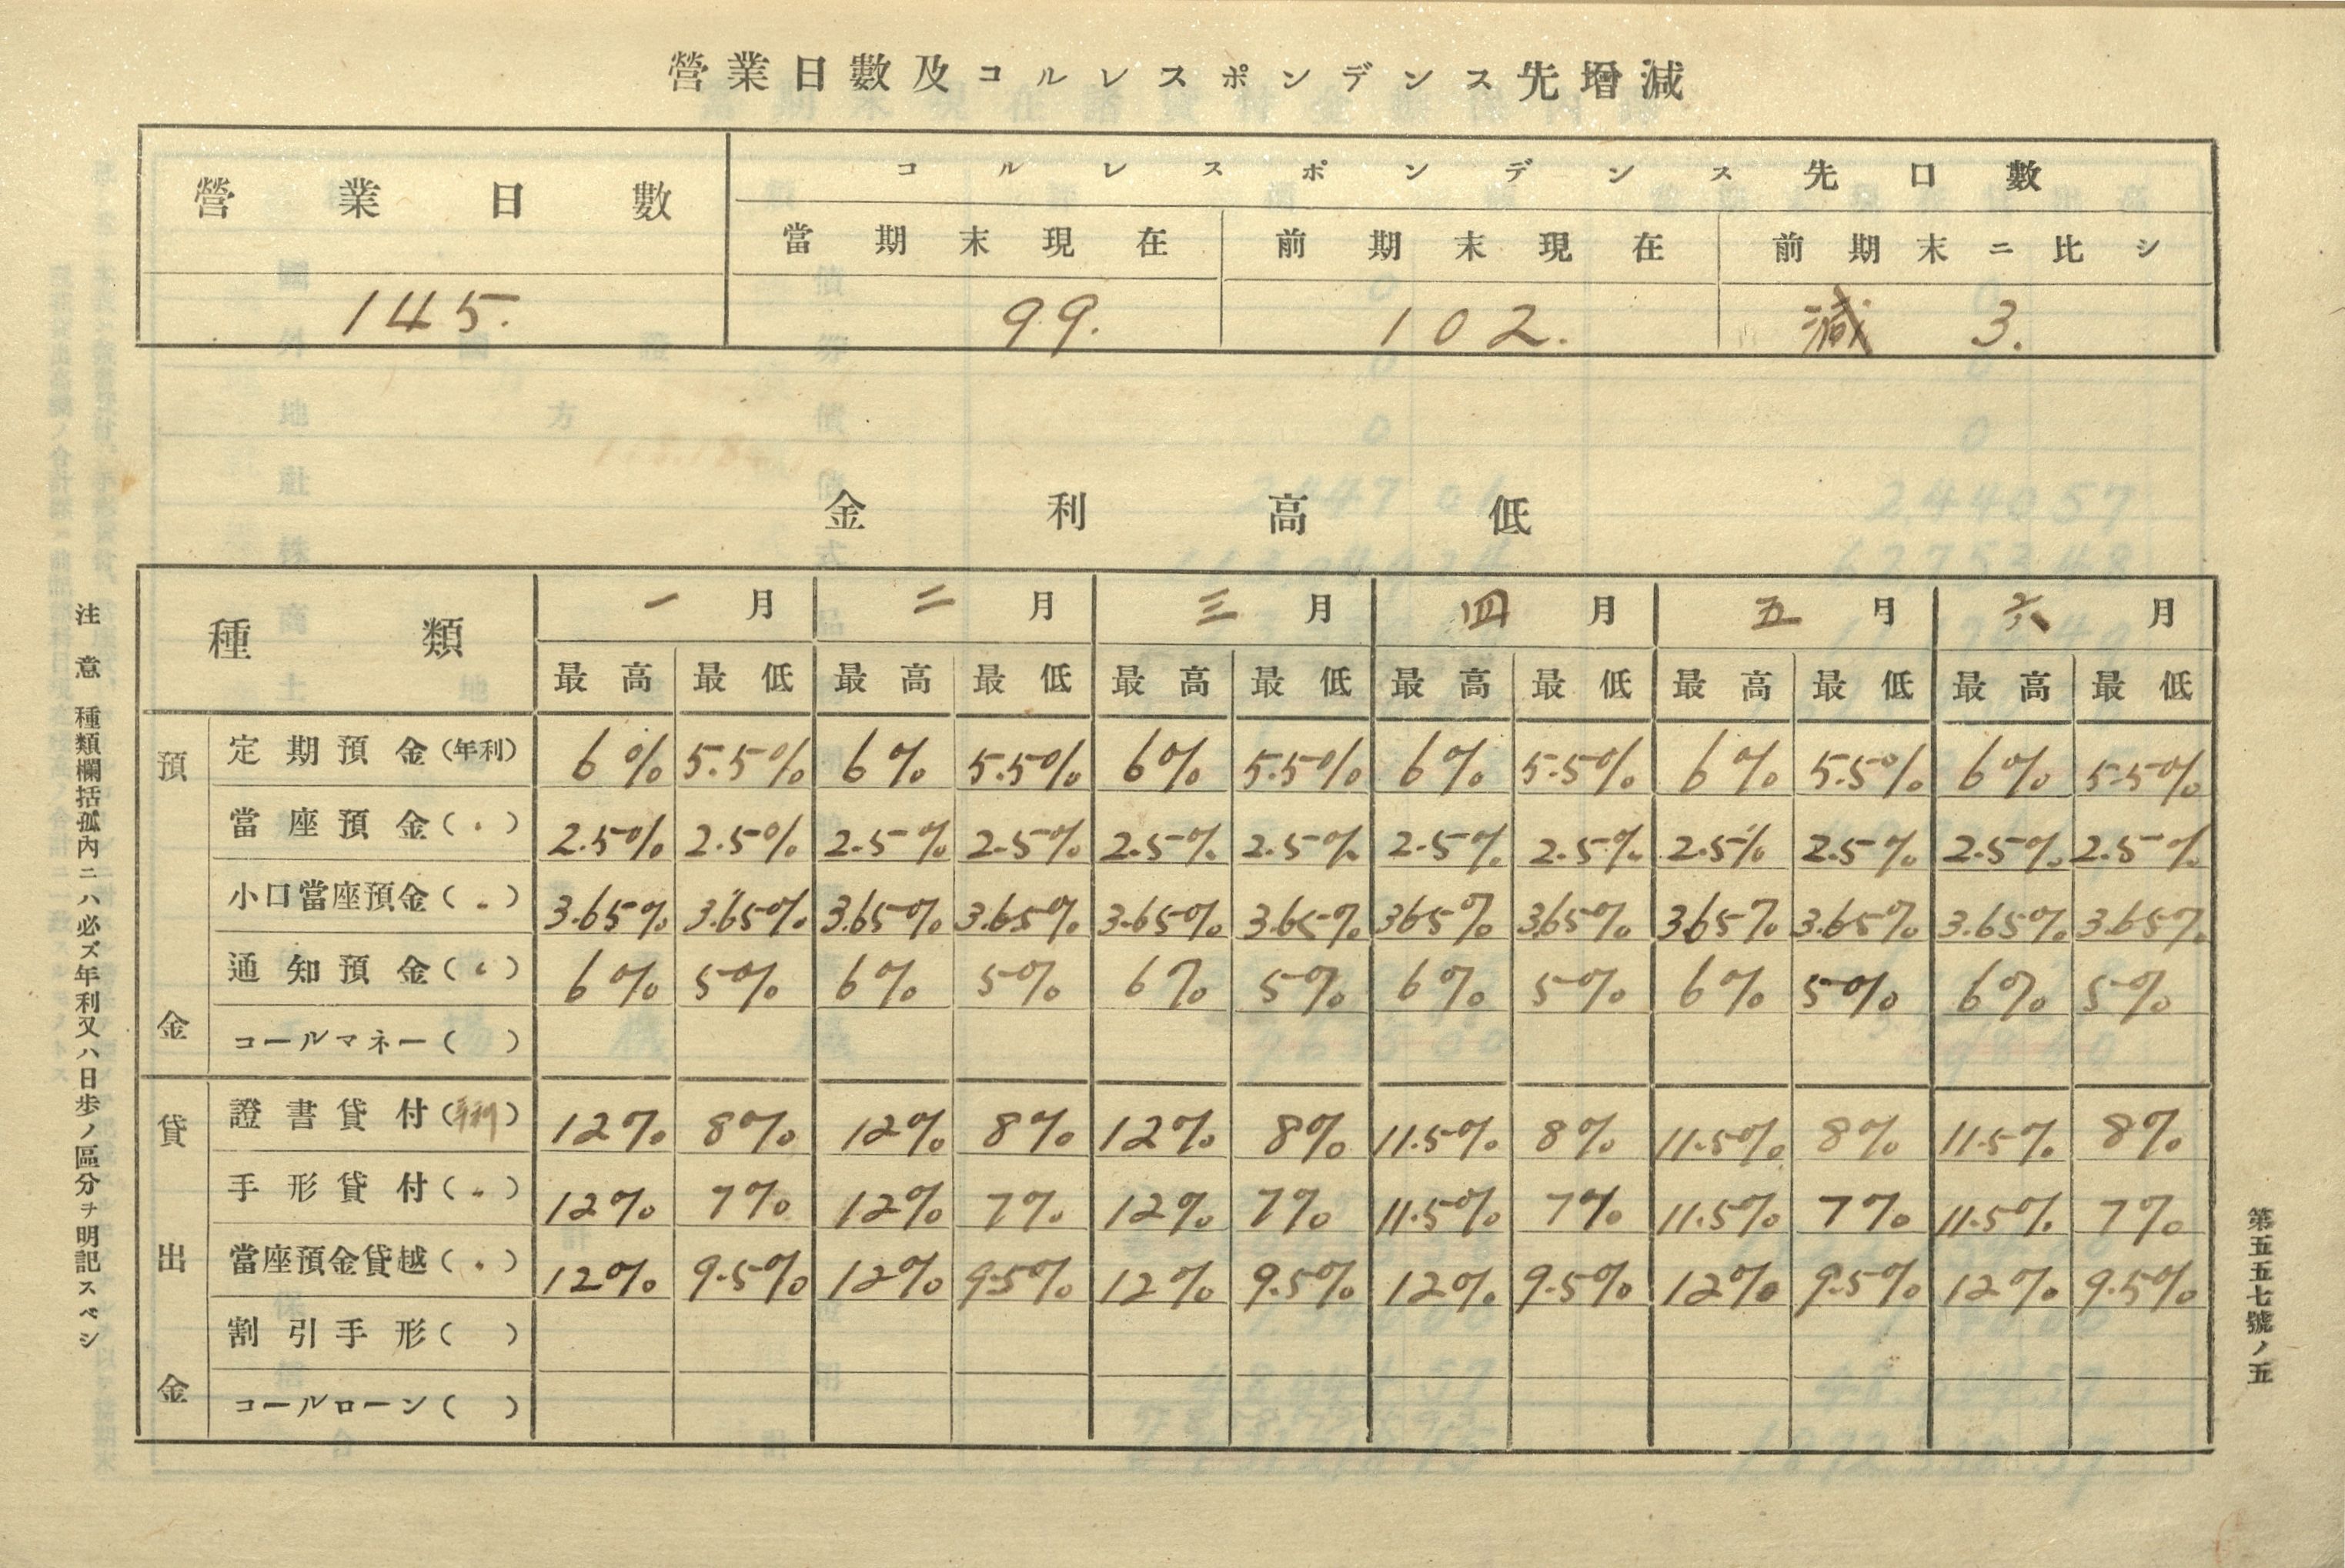 營業日數及コルレスポンデンス先增減
營業日數 コルレスポンデンス先口數
當期末現在 前期末現在 前期末ニ比シ
145. 99. 102. 減 3.
金利高低
種類 一月 二月 三月 四月 五月 六月
最高 最低 最高 最低 最高 最低 最高 最低 最高 最低 最高 最低
預金
定期預金(年利) 6% 5.5% 6% 5.5% 6% 5.5% 6% 5.5% 6% 5.5% 6% 5.5%
當座預金(〃) 2.5% 2.5% 2.5% 2.5% 2.5% 2.5% 2.5% 2.5% 2.5% 2.5% 2.5% 2.5%
小口當座預金(〃) 3.65% 3.65% 3.65% 3.65% 3.65% 3.65% 3.65% 3.65% 3.65% 3.65% 3.65% 3.65%
通知預金(〃) 6% 5% 6% 5% 6% 5% 6% 5% 6% 5% 6% 5%
コールマネー( )
貸出金
證書貸付(年利) 12% 8% 12% 8% 12% 8% 11.5% 8% 11.5% 8% 11.5% 8%
手形貸付(〃) 12% 7% 12% 7% 12% 7% 11.5% 7% 11.5% 7% 11.5% 7%
當座預金貸越(〃) 12% 9.5% 12% 9.5% 12% 9.5% 12% 9.5% 12% 9.5% 12% 9.5%
割引手形( )
コールローン( )
注意 種類欄括孤內ニハ必ズ年利又ハ日歩ノ區分ヲ明記スベシ
第五五七號ノ五